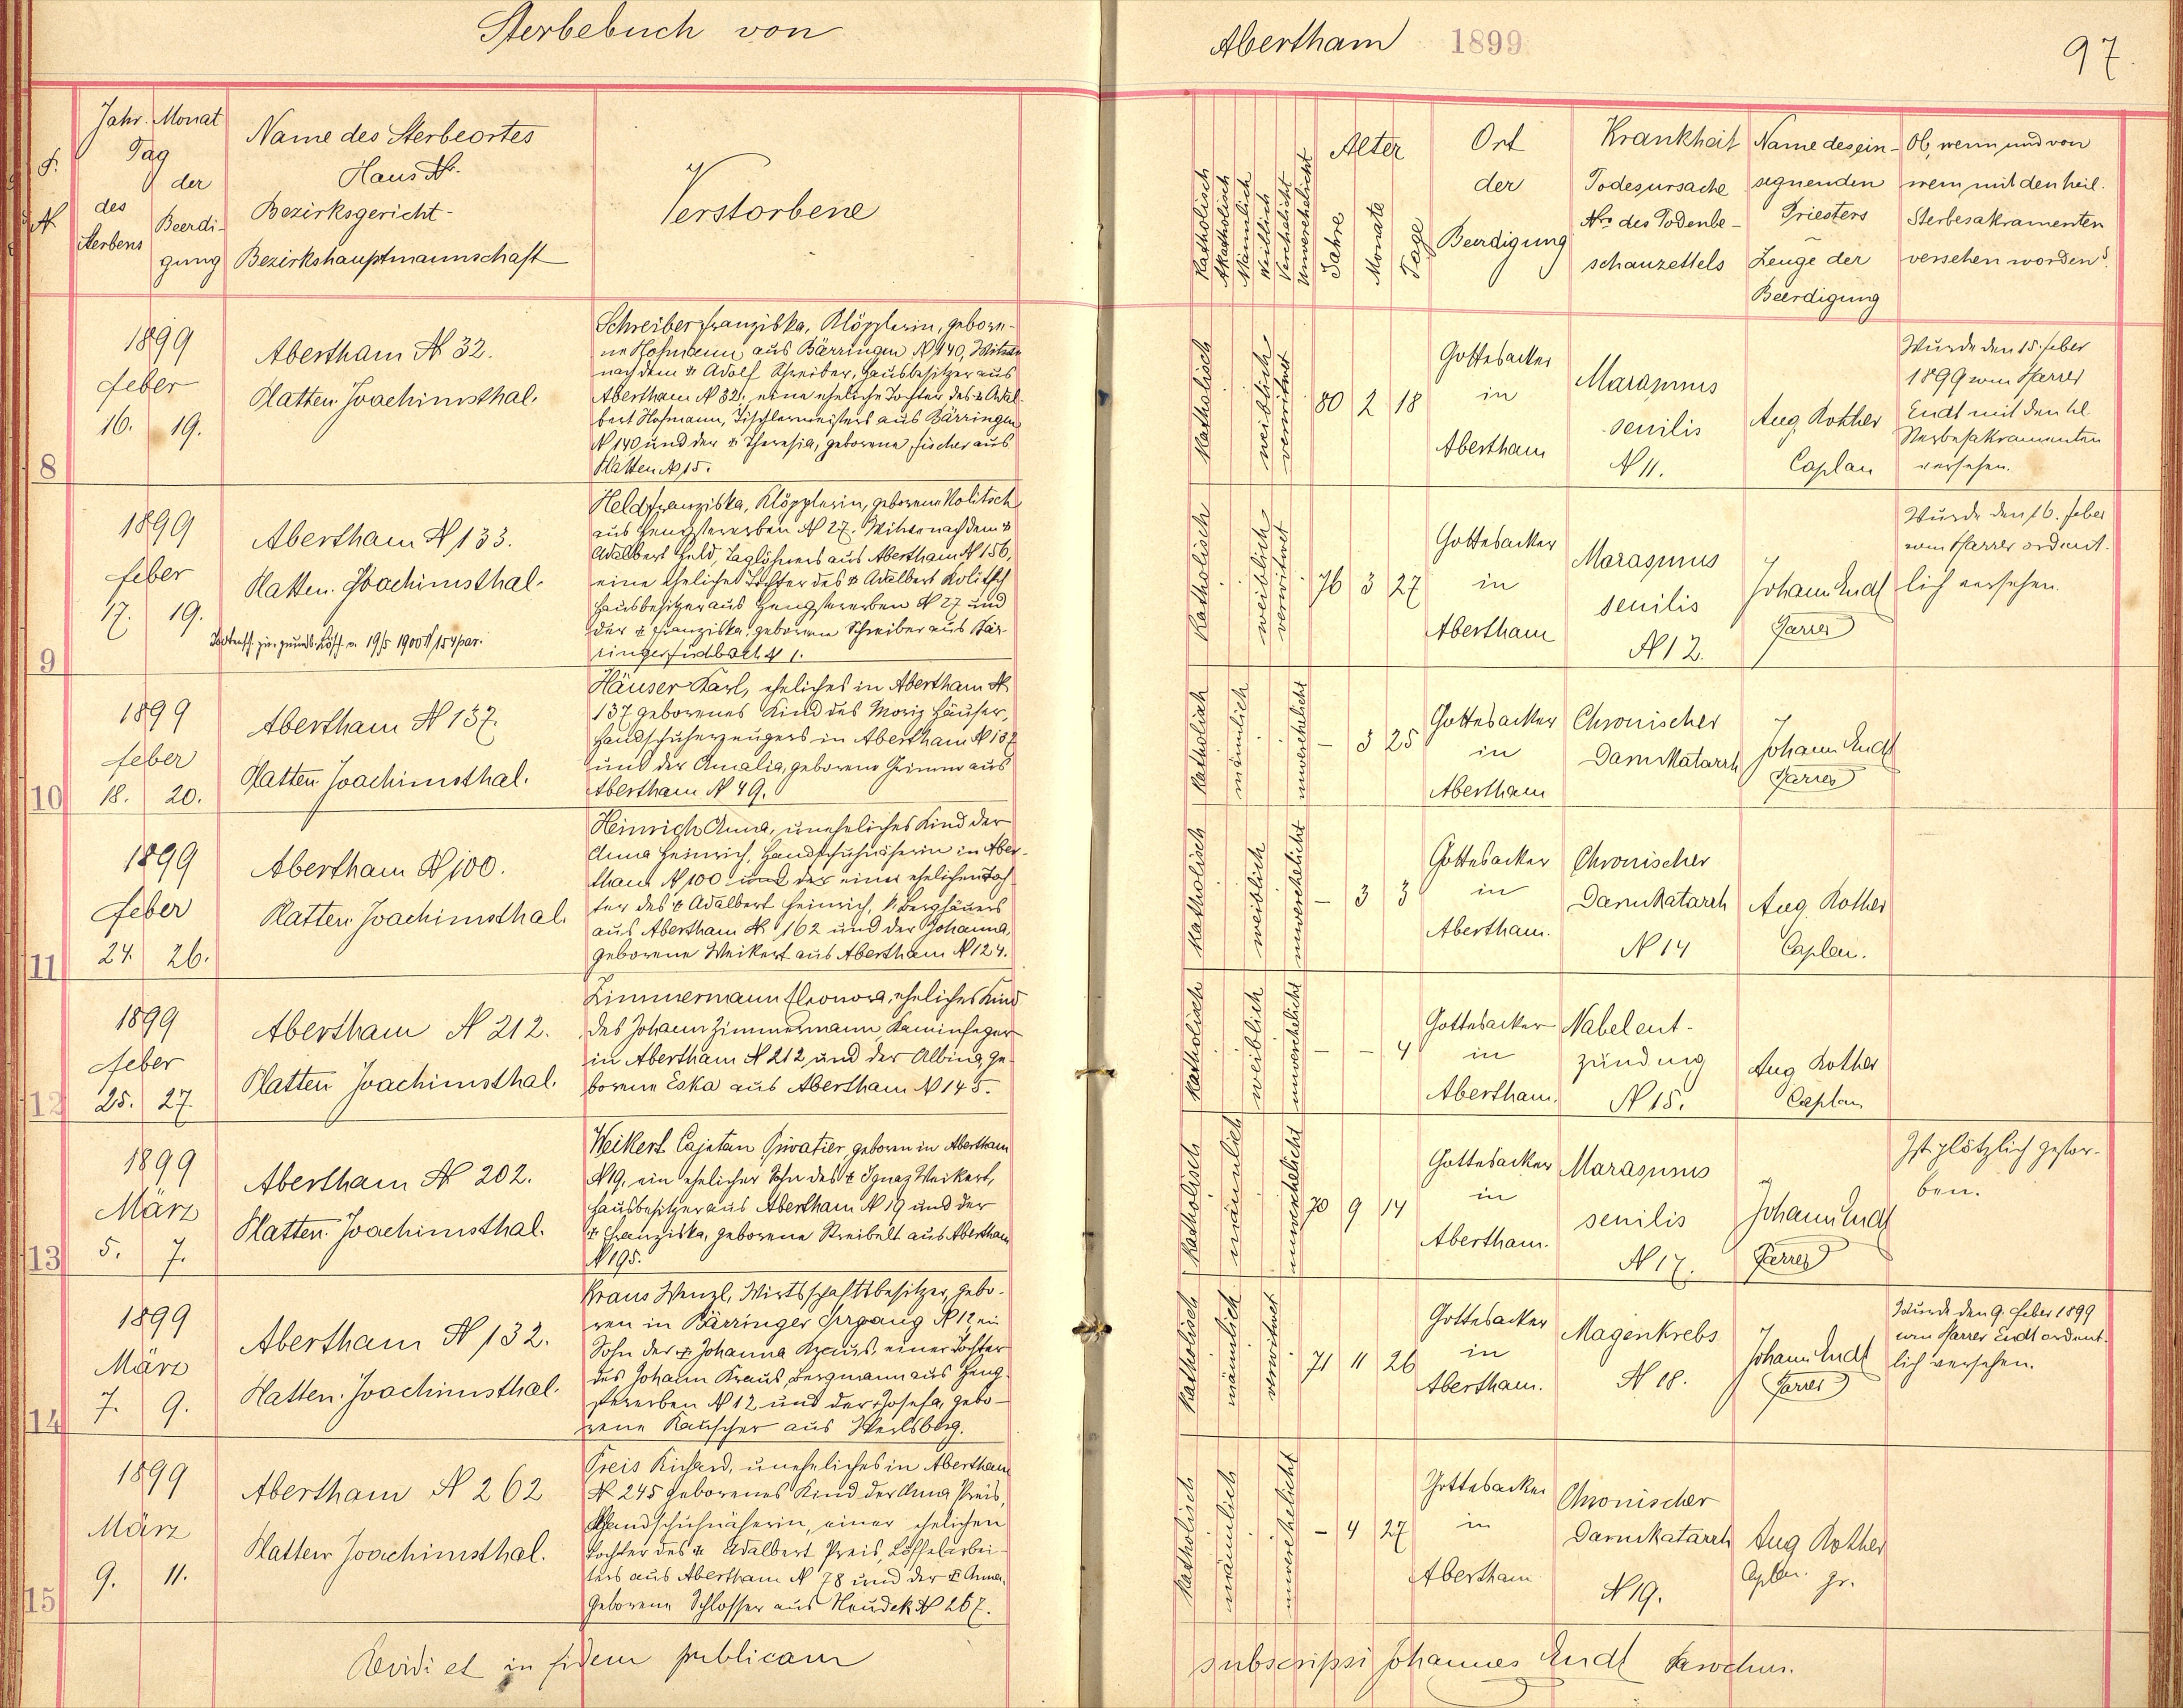 Sterbebuch von
Abertham 1899
97.
Jahr. Monat
Tag
der
des
Sterbens
Beerdi-
gung
Name des Sterbeortes
Haus N.
Bezirksgericht-
Bezirkshauptmannschaft
Verstorbene
Katholisch
Akatholisch
Männlich
Weiblich
Verehelicht
Unverehelicht
Alter
Jahre
Monate
Tage
Ort
der
Beerdigung
Krankheit
Todesursache
Nro des Todenbe-
schauzettels
Name des ein-
segnenden
Priesters
Zeuge der
Beerdigung
Ob, wenn und von
wem mit den heil.
Sterbesakramenten
versehen worden?
8
1899
Feber
16. 19.
Abertham N 32.
Platten. Joachimsthal.
Schreiber Franziska, Klöpplerin, gebore-
ne Hofmann aus Bärringen N 140, Witwe
nach dem † Adolf Schreiber, Hausbesitzer aus
Abertham N 32, eine eheliche Tochter des † Adal-
bert Hofmann, Tischlermeisters aus Bärringen
N 140 und der † Theresia, geborene Fischer aus
Platten N 15.
Katholisch
weiblich
verwitwet
80 2 18
Gottesacker
in
Abertham
Marasmus
senilis
N 11.
Aug. Rother
Caplan
Wurde den 15. Feber
1899 vom Pfarrer
Endt mit den hl.
Sterbesakramenten
versehen.
9
1899
Feber
17. 19.
Abertham N 133.
Platten. Joachimsthal.
19/5 1900
Held Franziska, Klöpplerin, geborene Kolitsch
aus Hengstererben N 27. Witwe nach dem †
Adalbert Held, Taglöhners aus Abertham N 156,
eine eheliche Tochter des † Adalbert Kolitsch
Hausbesitzer aus Hengstererben N 27 und
der † Franziska, geborenen Schreiber aus Bär-
N 1.
Katholisch
weiblich
verwitwet
76 3 27
Gottesacker
in
Abertham
Marasmus
senilis
N 12.
Johann Endt
Pfarrer
Wurde den 16. Feber
vom Pfarrer ordent-
lich versehen.
10
1899
Feber
18. 20.
Abertham N 137.
Platten Joachimsthal.
Häuser Karl, eheliches in Abertham N
137 geborenes Kind des Moriz Häuser,
Handschuherzeugers in Abertham N 137
und der Amalia, geborene Grimm aus
Abertham N 49.
Katholisch
männlich
unverehelicht
– 3 25
Gottesacker
in
Abertham
Chronischer
Darmkatarrh
Johann Endt
Pfarrer
11
1899
Feber
24. 26.
Abertham N 100.
Platten Joachimsthal.
Heinrich Anna, uneheliches Kind der
Anna Heinrich, Handschuhnäherin in Aber-
tham N 100 und der einer ehelichen Toch-
ter des † Adalbert Heinrich, Berghäuers
aus Abertham N 162 und der Johanna,
geborene Weikert aus Abertham N 124.
Katholisch
weiblich
unverehelicht
– 3 3
Gottesacker
in
Abertham.
Chronischer
Darmkatarrh
N 14
Aug. Rother
Caplan.
12
1899
Feber
25. 27.
Abertham N 212.
Platten Joachimsthal.
Zimmermann Eleonora, eheliches Kind
des Johann Zimmermann Kaminfeger
in Abertham N 212 und der Albina, ge-
borene Eska aus Abertham N 145.
Katholisch
weiblich
unverehelicht
– – 4
Gottesacker
in
Abertham.
Nabelent-
zündung
N 15.
Aug Rother
Caplan
13
1899
März
5. 7.
Abertham N 202.
Platten. Joachimsthal.
Weikert Cajetan Privatier, geboren in Abertham
N 19, ein ehelicher Sohn des † Ignaz Weikert,
Hausbesitzer aus Abertham N 19 und der
† Franziska, geborene Streibelt aus Abertham
N 195.
Katholisch
männlich
unverehelicht
70 9 14
Gottesacker
in
Abertham.
Marasmus
senilis
N 17.
Johann Endt
Pfarrer
Ist plötzlich gestor-
ben.
14
1899
März
7. 9.
Abertham N 132.
Platten. Joachimsthal.
Kraus Wenzl, Wirtschaftsbesitzer, gebo-
ren in Bärringer Irrgang N 12, ein
Sohn der † Johanna Kraus, einer Tochter
des Johann Kraus, Bergmann aus Heng-
stererben N 12 und der Josefa, gebo-
rene Rauscher aus Werlsberg.
Katholisch
männlich
verwitwet
71 11 26
Gottesacker
in
Abertham.
Magenkrebs
N 18.
Johann Endt
Pfarrer
Wurde den 9. Feber 1899
vom Pfarrer Endt ordent-
lich versehen.
15
1899
März
9. 11.
Abertham N 262
Platten Joachimsthal.
Preis Richard, uneheliches in Abertham
N 245 geborenes Kind der Anna Preis,
Handschuhnäherin, einer ehelichen
Tochter des † Adalbert Preis, Löffelarbei-
ters aus Abertham N 78 und der † Anna,
geborene Schlosser aus Neudek N 267.
Katholisch
männlich
unverehelicht
– 4 27
Gottesacker
in
Abertham
Chronischer
Darmkatarrh
N 19.
Aug Rother
Caplan. gr.
Revidi et in fidem publicam
subscripsi Johannes Endt Parochus.